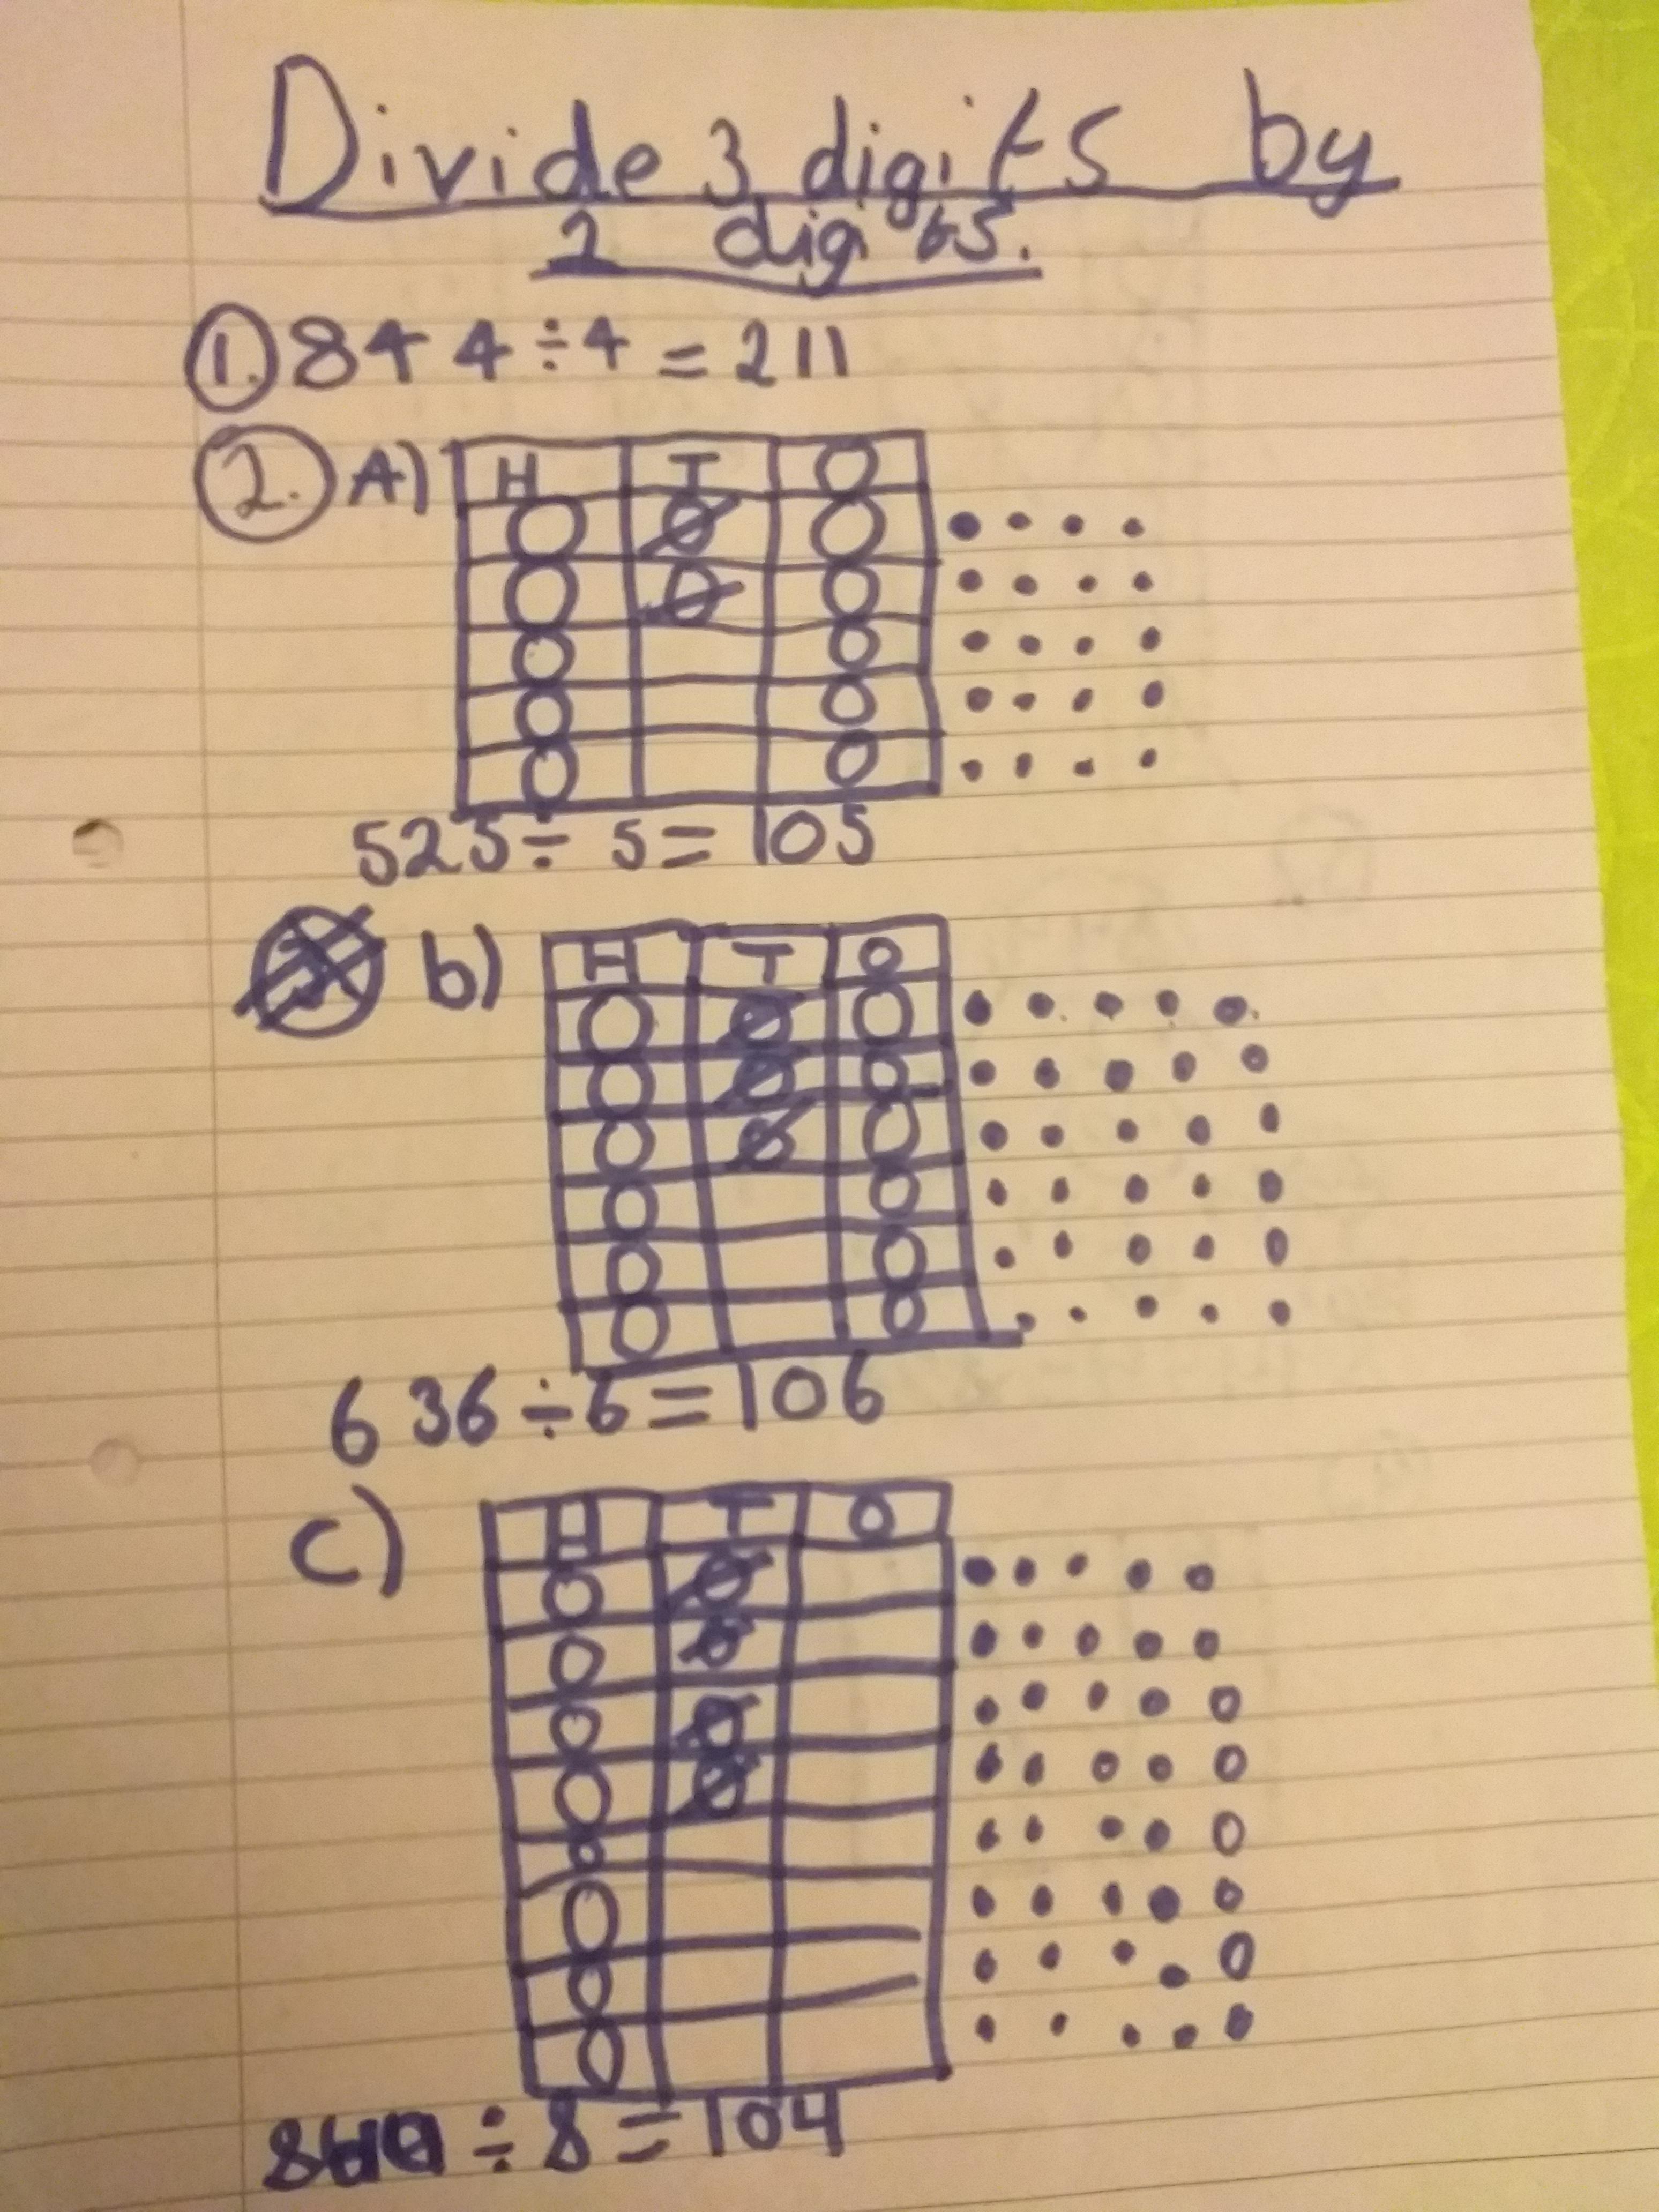 Divide 3 digits by
2 digits.
1. 844 ÷ 4 = 211
2. A) H T O
525 ÷ 5 = 105
b) H T O
636 ÷ 6 = 106
c) H T O
÷ 8 = 104